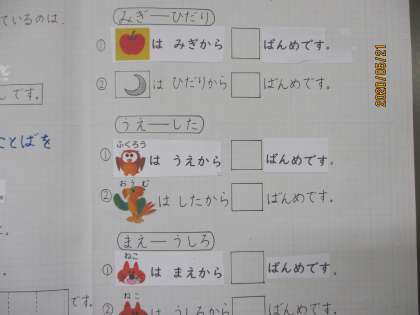 ているのは、
です。
ことばを
みぎーひだり
① は みぎから ばんめです。
② は ひだりから ばんめです。
うえーした
ふくろう
① は うえから ばんめです。
おうむ
② は したから ばんめです。
まえーうしろ
ねこ
① は まえから ばんめです。
ねこ
② は うしろから ばんめです。
です。